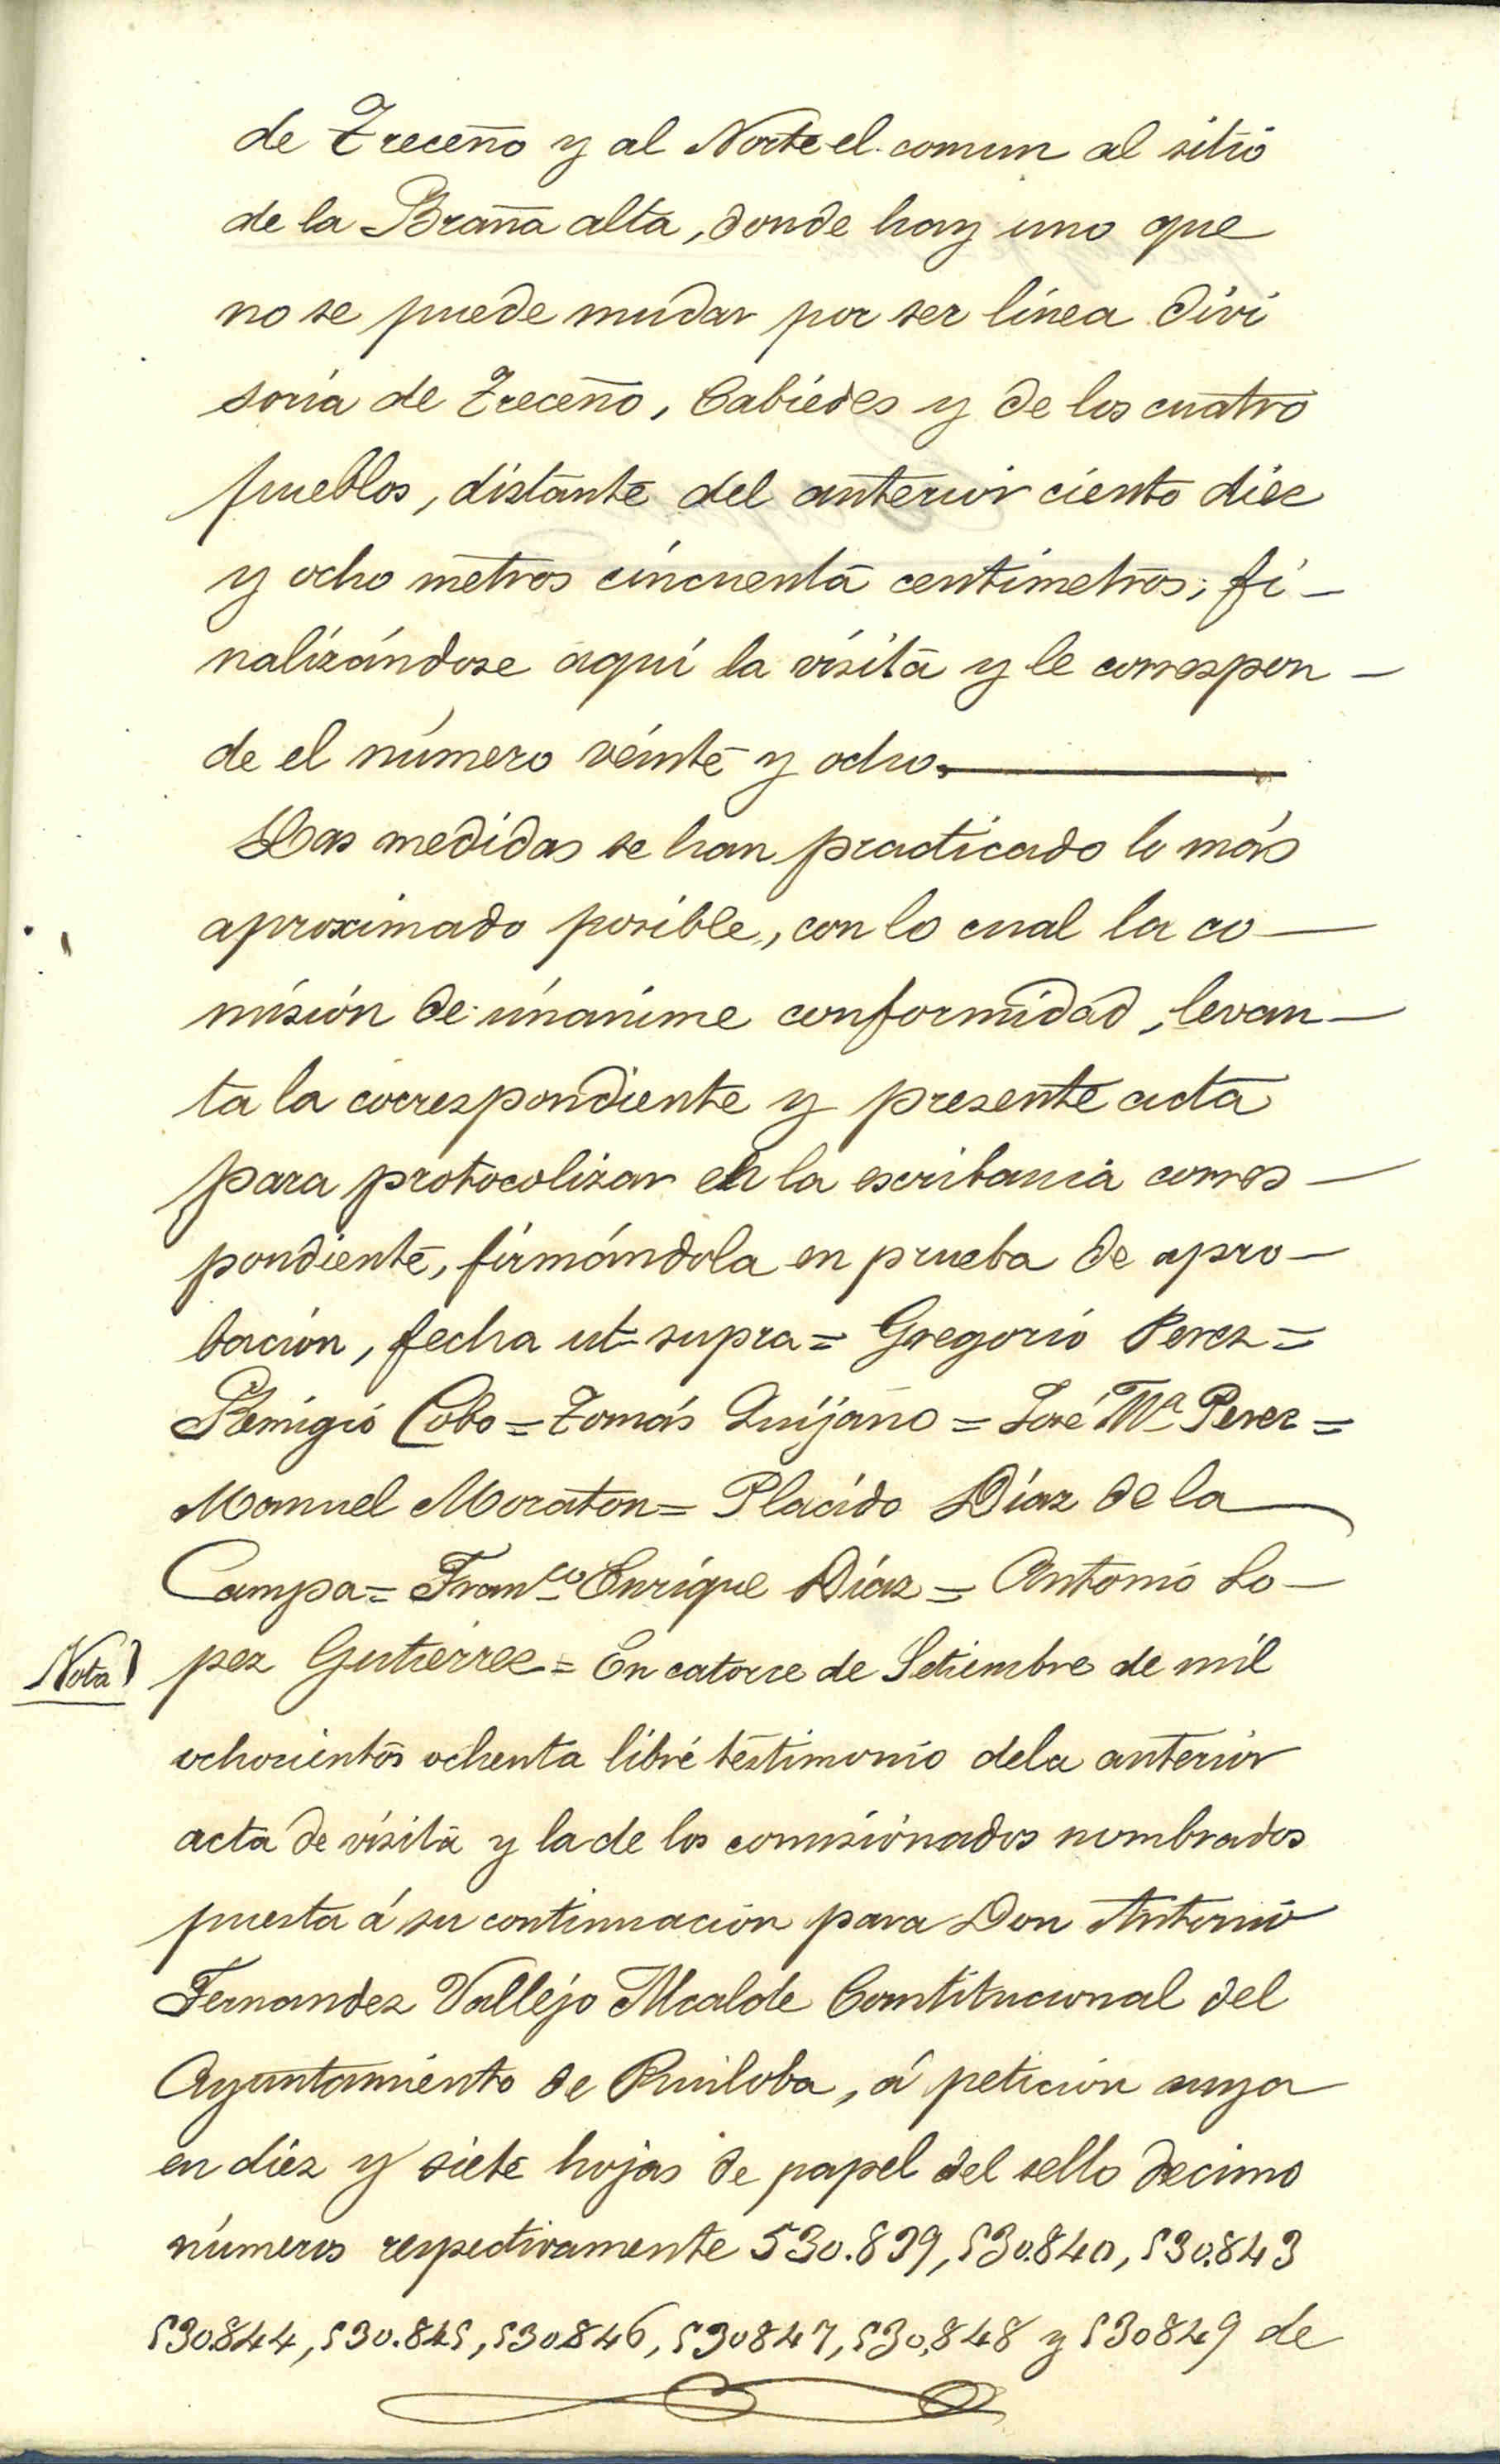 de Treceño y al Norte el comun al sitio
de la Braña alta, donde hay uno que
no se puede mudar por ser línea divi
soria de Treceño, Cabiedes y de los cuatro
pueblos, distante del anterior ciento diez
y ocho metros cincuenta centímetros; fi-
nalizándose aquí la visita y le correspon-
de el número veinte y ocho.
Las medidas se han practicado lo más
aproximado posible, con lo cual la co-
misión de unánime conformidad, levan-
ta la correspondiente y presente acta
para protocolizar en la escribania corres-
pondiente, firmándola en prueba de apro-
bación, fecha ut supra = Gregorio Perez =
Remigio Cobo = Tomás Quijano = José Mª Perez =
Manuel Moraton = Placido Díaz de la
Campa = Franco Enrique Díaz = Antonio Lo-
Nota) pez Gutierrez = En catorce de Setiembre de mil
ochocientos ochenta libré testimonio dela anterior
acta de visita y la de los comisionados nombrados
puesta á su continuacion para Don Antonio
Fernandez Vallejo Alcalde Constitucional del
Ayuntamiento de Ruiloba, á petición suya
en diez y siete hojas de papel del sello decimo
números respectivamente 530.839, 530.840, 530.843
530.844, 530.845, 530.846, 530847, 530,848 y 530849 de